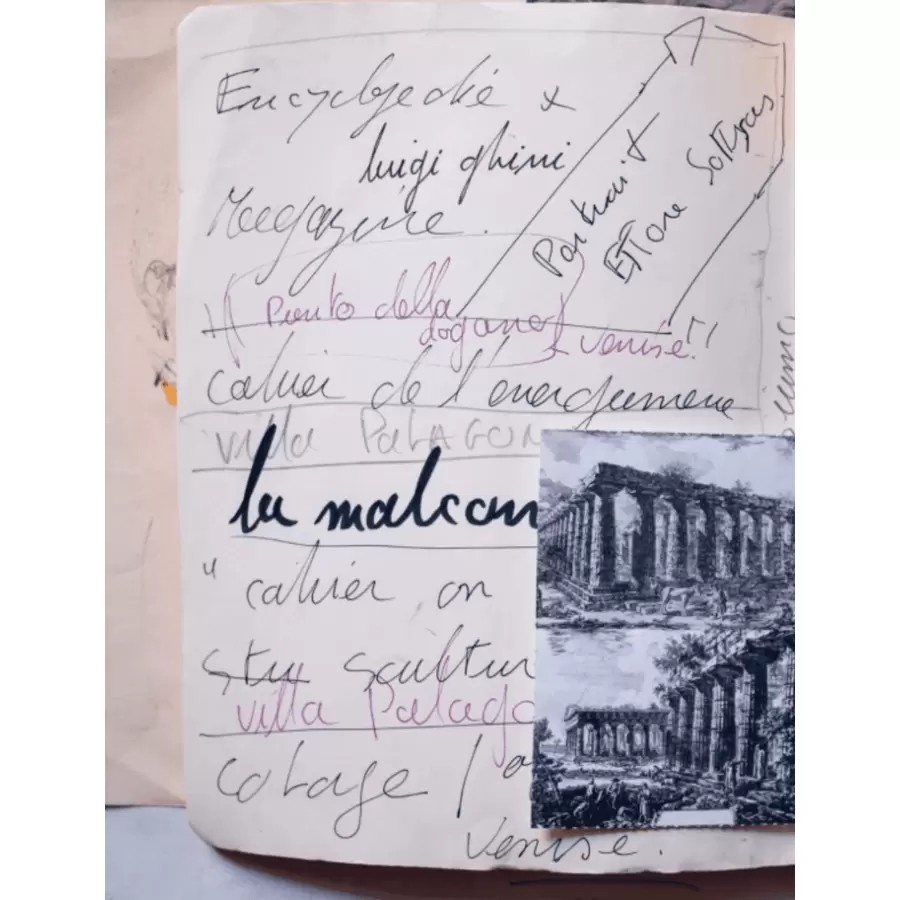 Encyclopedie x
luigi ghirri
Magazine.
Portrait
ETTore SoTTsass
Punto della
dogane
Venise!!
cahier de l'energumene
villa PALAGON
la malcon
" cahier on
scultur
villa Palago
colage / a
Venise.